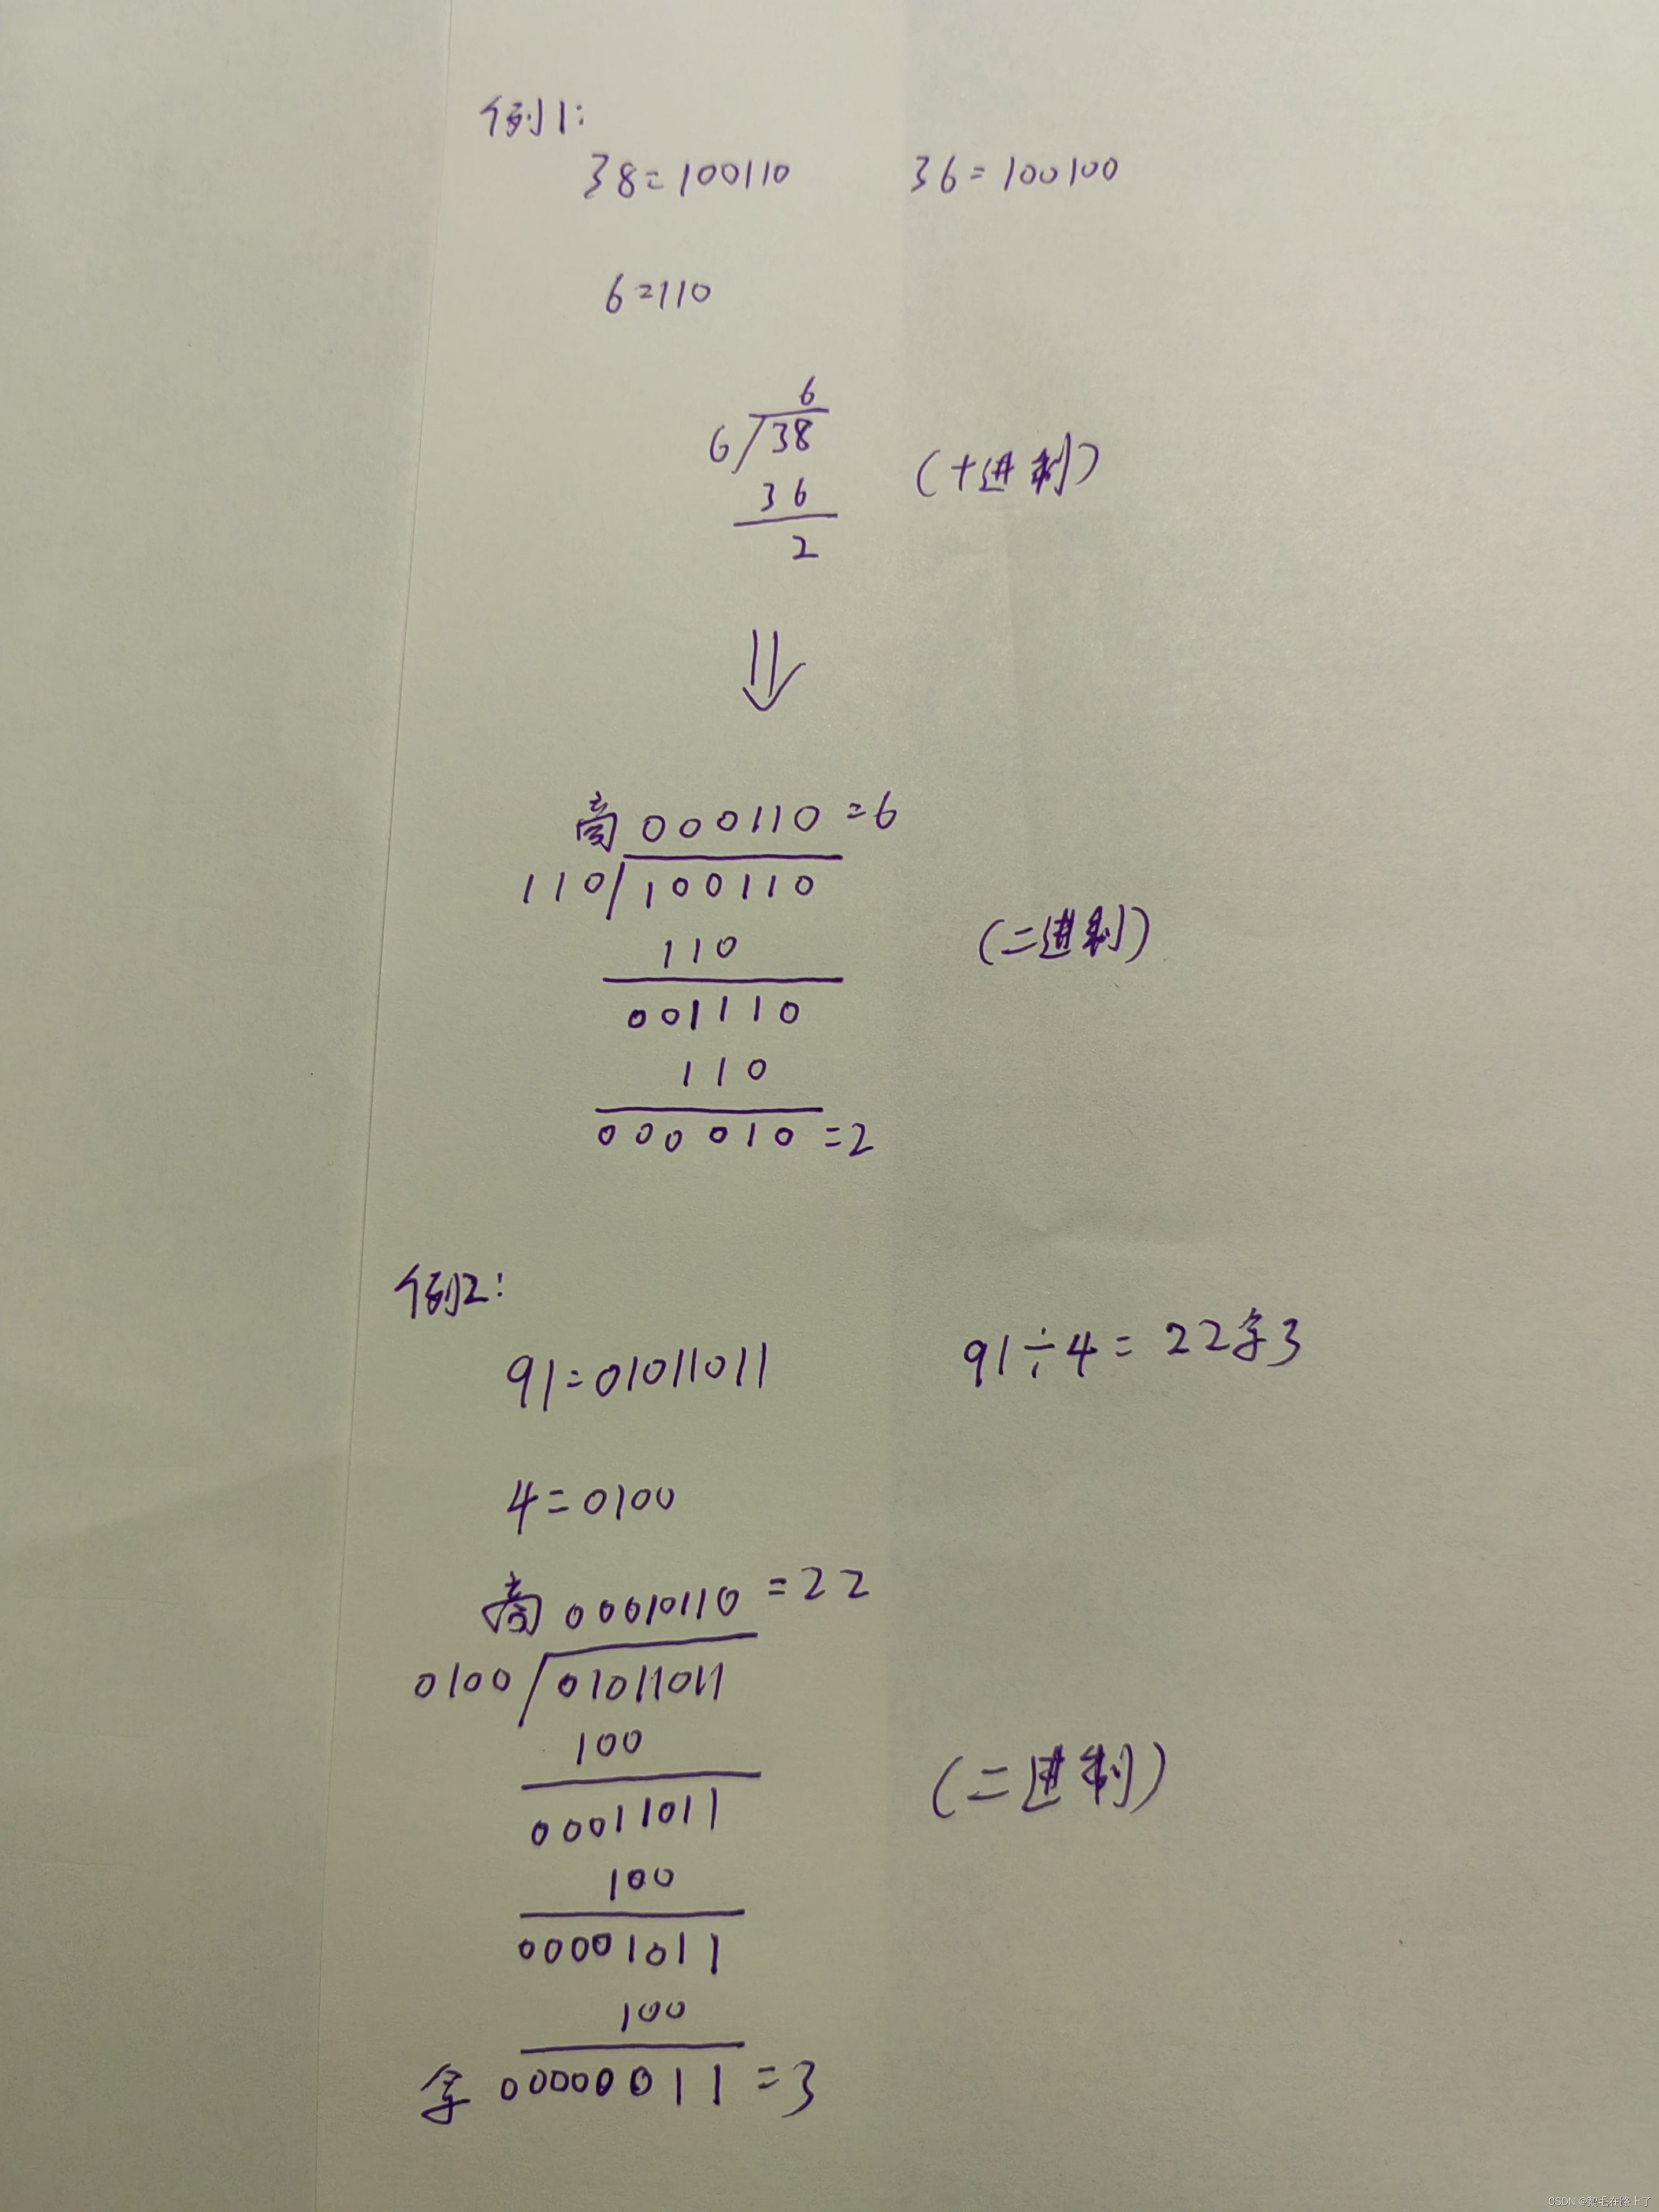 例1:
38=100110 36=100100
6=110
6
6/38
(十进制)
36
2
商 000110 =6
110/100110
(二进制)
110
001110
110
000010 =2
例2:
91=01011011 91÷4=22余3
4=0100
商 00010110 =22
0100/01011011
100
(二进制)
00011011
100
00001011
100
余 00000011 =3
CSDN @鹅毛在路上了